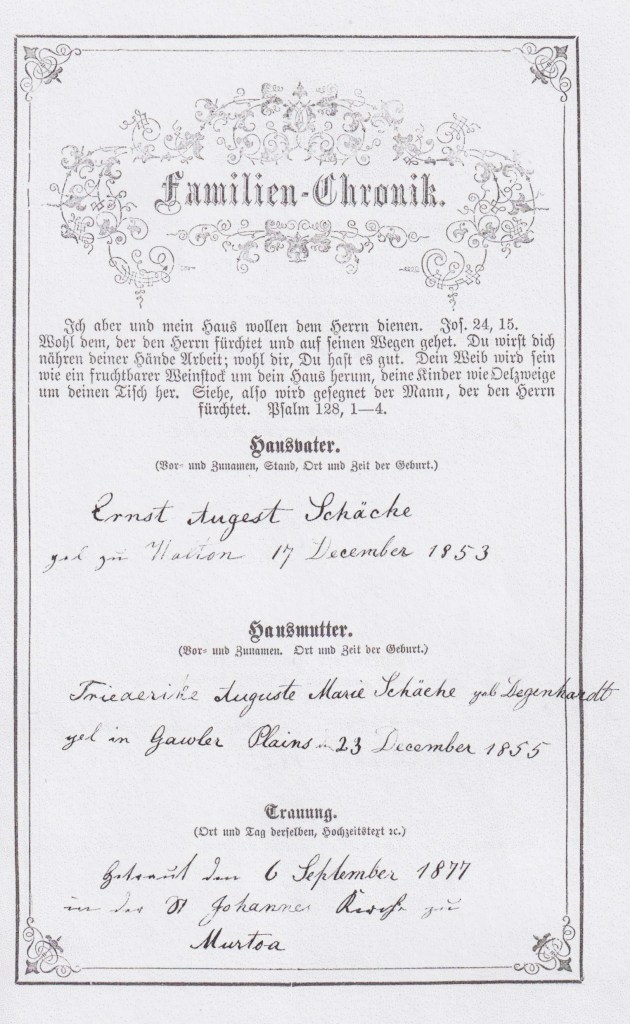 Familien-Chronik.
Ich aber und mein Haus wollen dem Herrn dienen. Jos. 24, 15.
Wohl dem, der den Herrn fürchtet und auf seinen Wegen gehet. Du wirst dich
nähren deiner Hände Arbeit; wohl dir, Du hast es gut. Dein Weib wird sein
wie ein fruchtbarer Weinstock um dein Haus herum, deine Kinder wie Oelzweige
um deinen Tisch her. Siehe, also wird gesegnet der Mann, der den Herrn
fürchtet. Psalm 128, 1—4.
Hausvater.
(Vor- und Zunamen, Stand, Ort und Zeit der Geburt.)
Ernst Augest Schäcke
zu 17 December 1853
Hausmutter.
(Vor- und Zunamen. Ort und Zeit der Geburt.)
Friederike Auguste Marie Schäcke geb Degenhardt
in Gawler Plains 23 December 1855
Trauung.
(Ort und Tag derselben, Hochzeitstext ꝛc.)
Getraut den 6 September 1877
in der St Johannes Kirche zu
Murtoa